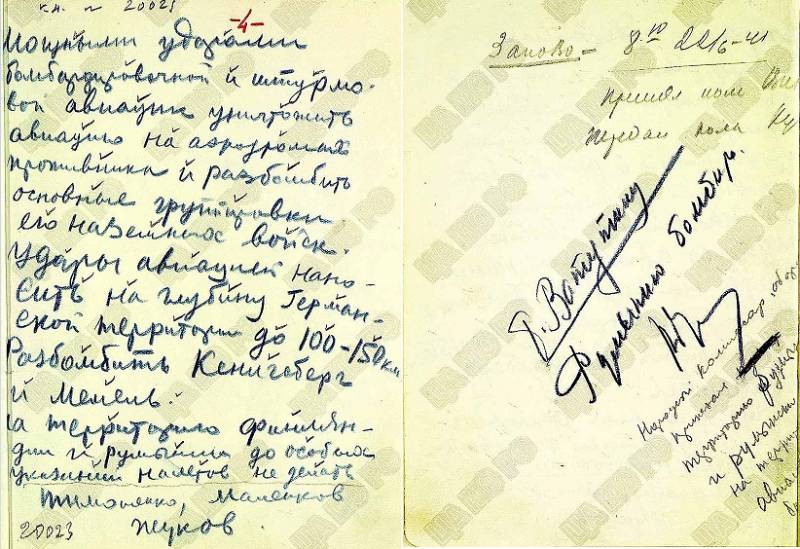 к.н. № 20023
-4-
Мощными ударами
бомбардировочной и штурмо-
вой авиации уничтожить
авиацию на аэродромах
противника и разбомбить
основные группировки
его наземных войск.
Удары авиацией нано-
сить на глубину Герман-
ской территории до 100-150 км
Разбомбить Кенигсберг
и Мемель.
на территорию Финлян-
дии и румынии до особых
указаний налетов не делать
Тимошенко, Маленков
Жуков.
20023
8 10 22/6-41
Принял
Передал
Т. Ватутину
Румынию бомбир.
Народный комиссар
территорию
и румынск
на терри
авиа